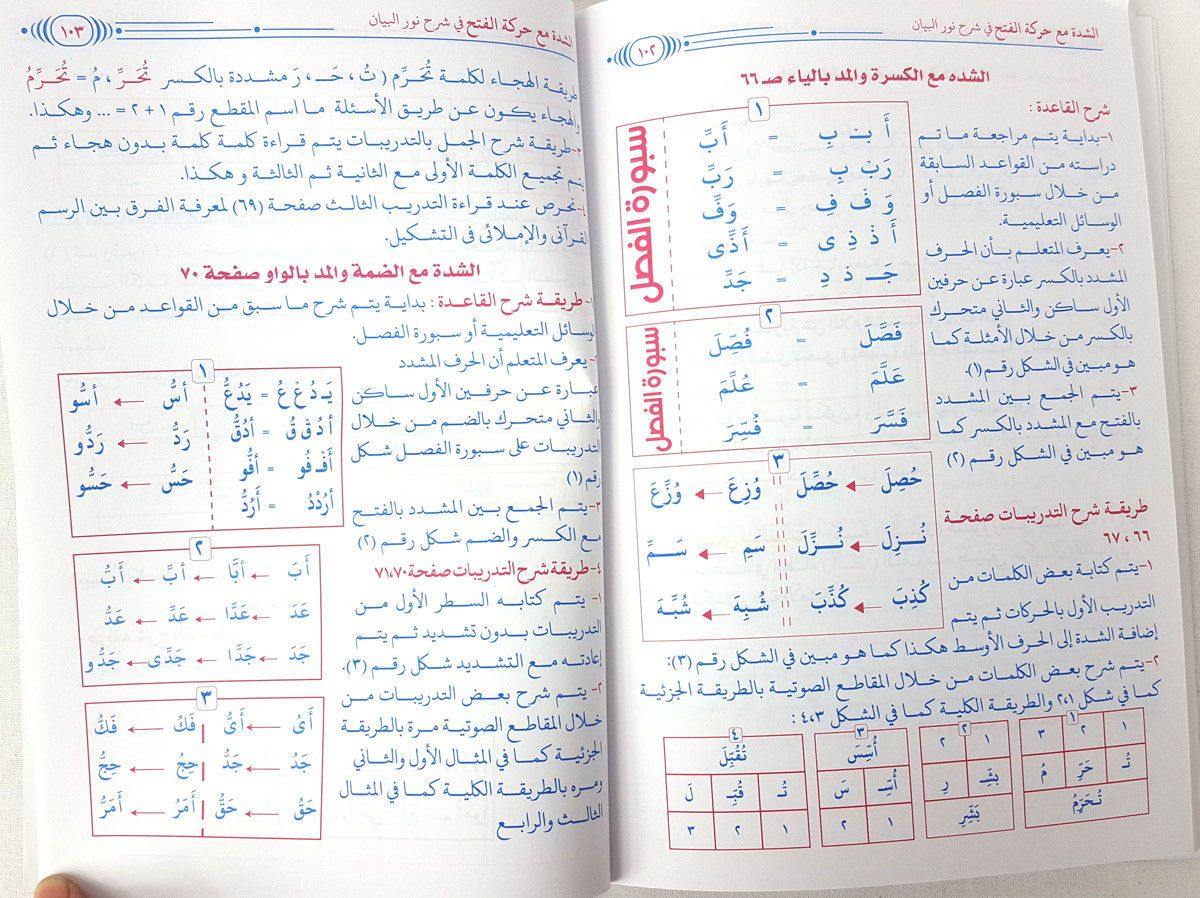 الشدة مع حركة الفتح في شرح نور البيان
١٠٢
الشده مع الكسرة والمد بالياء صـ ٦٦
شرح القاعدة :
١-بداية يتم مراجعة ما تم
دراسته من القواعد السابقة
من خلال سبورة الفصل أو
الوسائل التعليمية.
٢-يعرف المتعلم بأن الحرف
المشدد بالكسر عبارة عن حرفين
الأول ساكن والثاني متحرك
بالكسر من خلال الأمثلة كما
هو مبين في الشكل رقم (١).
٣-يتم الجمع بين المشدد
بالفتح مع المشدد بالكسر كما
هو مبين في الشكل رقم (٢)
١
أَ بْـ بِ = أَبِّ
رَبْ بِ = رَبِّ
وَ فْ فِ = وَفِّ
أَ ذْ ذِ ى = أَذِّى
جَـ دْ دِ = جَدِّ
سبورة الفصل
٢
فَصَّلَ = فُصِّلَ
عَلَّمَ = عُلِّمَ
فَسَّرَ = فُسِّرَ
سبورة الفصل
٣
حُصِلَ ← حُصِّلَ وُزِعَ ← وُزِّعَ
نُـزِلَ ← نُـزِّلَ سَمِ ← سَـمِّ
كُذِبَ ← كُذِّبَ شُبِهَ ← شُبِّهَ
طريقة شرح التدريبات صفحة
٦٦ ، ٦٧
١-يتم كتابة بعض الكلمات من
التدريب الأول بالحركات ثم يتم
إضافة الشدة إلى الحرف الأوسط هكذا كما هو مبين في الشكل رقم (٣):
٢-يتم شرح بعض الكلمات من خلال المقاطع الصوتية بالطريقة الجزئية
كما في شكل ٢،١ والطريقة الكلية كما في الشكل ٤،٣ :
١
١ ٢ ٣
تُـ حَرِّ مُ
تُحَرِّمُ
٢
١ ٢
بَشِّـ رِ
بَشِّرِ
٣
أُسِّسَ
أُسِّـ سَ
١ ٢
٤
تُقُبِّلَ
تُـ قُبِّـ لَ
١ ٢ ٣
الشدة مع حركة الفتح في شرح نور البيان
١٠٣
طريقة الهجاء لكلمة تُحَرِّم ( تُ ، حَـ ، رَ مشددة بالكسر تُحَرِّ ، مُ = تُحَرِّمُ
والهجاء يكون عن طريق الأسئلة ما اسم المقطع رقم ١ + ٢ = ... وهكذا.
٣-طريقة شرح الجمل بالتدريبات يتم قراءة كلمة كلمة بدون هجاء ثم
يتم تجميع الكلمة الأولى مع الثانية ثم الثالثة و هكذا.
٤-نحرص عند قراءة التدريب الثالث صفحة (٦٩) لمعرفة الفرق بين الرسم
القرآنى والإملائى فى التشكيل.
الشدة مع الضمة والمد بالواو صفحة ٧٠
١- طريقة شرح القاعدة : بداية يتم شرح ما سبق من القواعد من خلال
الوسائل التعليمية أو سبورة الفصل.
٢-يعرف المتعلم أن الحرف المشدد
عبارة عن حرفين الأول ساكن
والثاني متحرك بالضم من خلال
التدريبات على سبورة الفصل شكل
رقم (١)
٣-يتم الجمع بين المشدد بالفتح
مع الكسر والضم شكل رقم (٢)
١
يَـ دُ عْ عُ = يَدُعُّ أسُّ ← أسُّو
أ دُ قْ قُ = أدُقُّ رَدُّ ← رَدُّو
أَفْـ فُو = أفُّو حَسُّ ← حَسُّو
أرُدْدُ = أَرُدُّ
٢
أَبَ ← أبَّا ← أبِّ ← أَبُّ
عَدَ ← عَدَّا ← عَدِّ ← عَدُّ
جَدَ ← جَدَّا ← جَدِّى ← جَدُّو
٤-طريقة شرح التدريبات صفحة ٧١،٧٠
١- يتم كتابه السطر الأول من
التدريبات بدون تشديد ثم يتم
إعادته مع التشديد شكل رقم (٣).
٢- يتم شرح بعض التدريبات من
خلال المقاطع الصوتية مرة بالطريقة
الجزئية كما في المثال الأول والثاني
ومره بالطريقة الكلية كما في المثال
الثالث والرابع
٣
أَىُ ← أَىُّ فَكُ ← فَكُّ
جَدُ ← جَدُّ حِجُ ← حِجُّ
حَقُ ← حَقُّ أَمَرُ ← أَمَرُّ